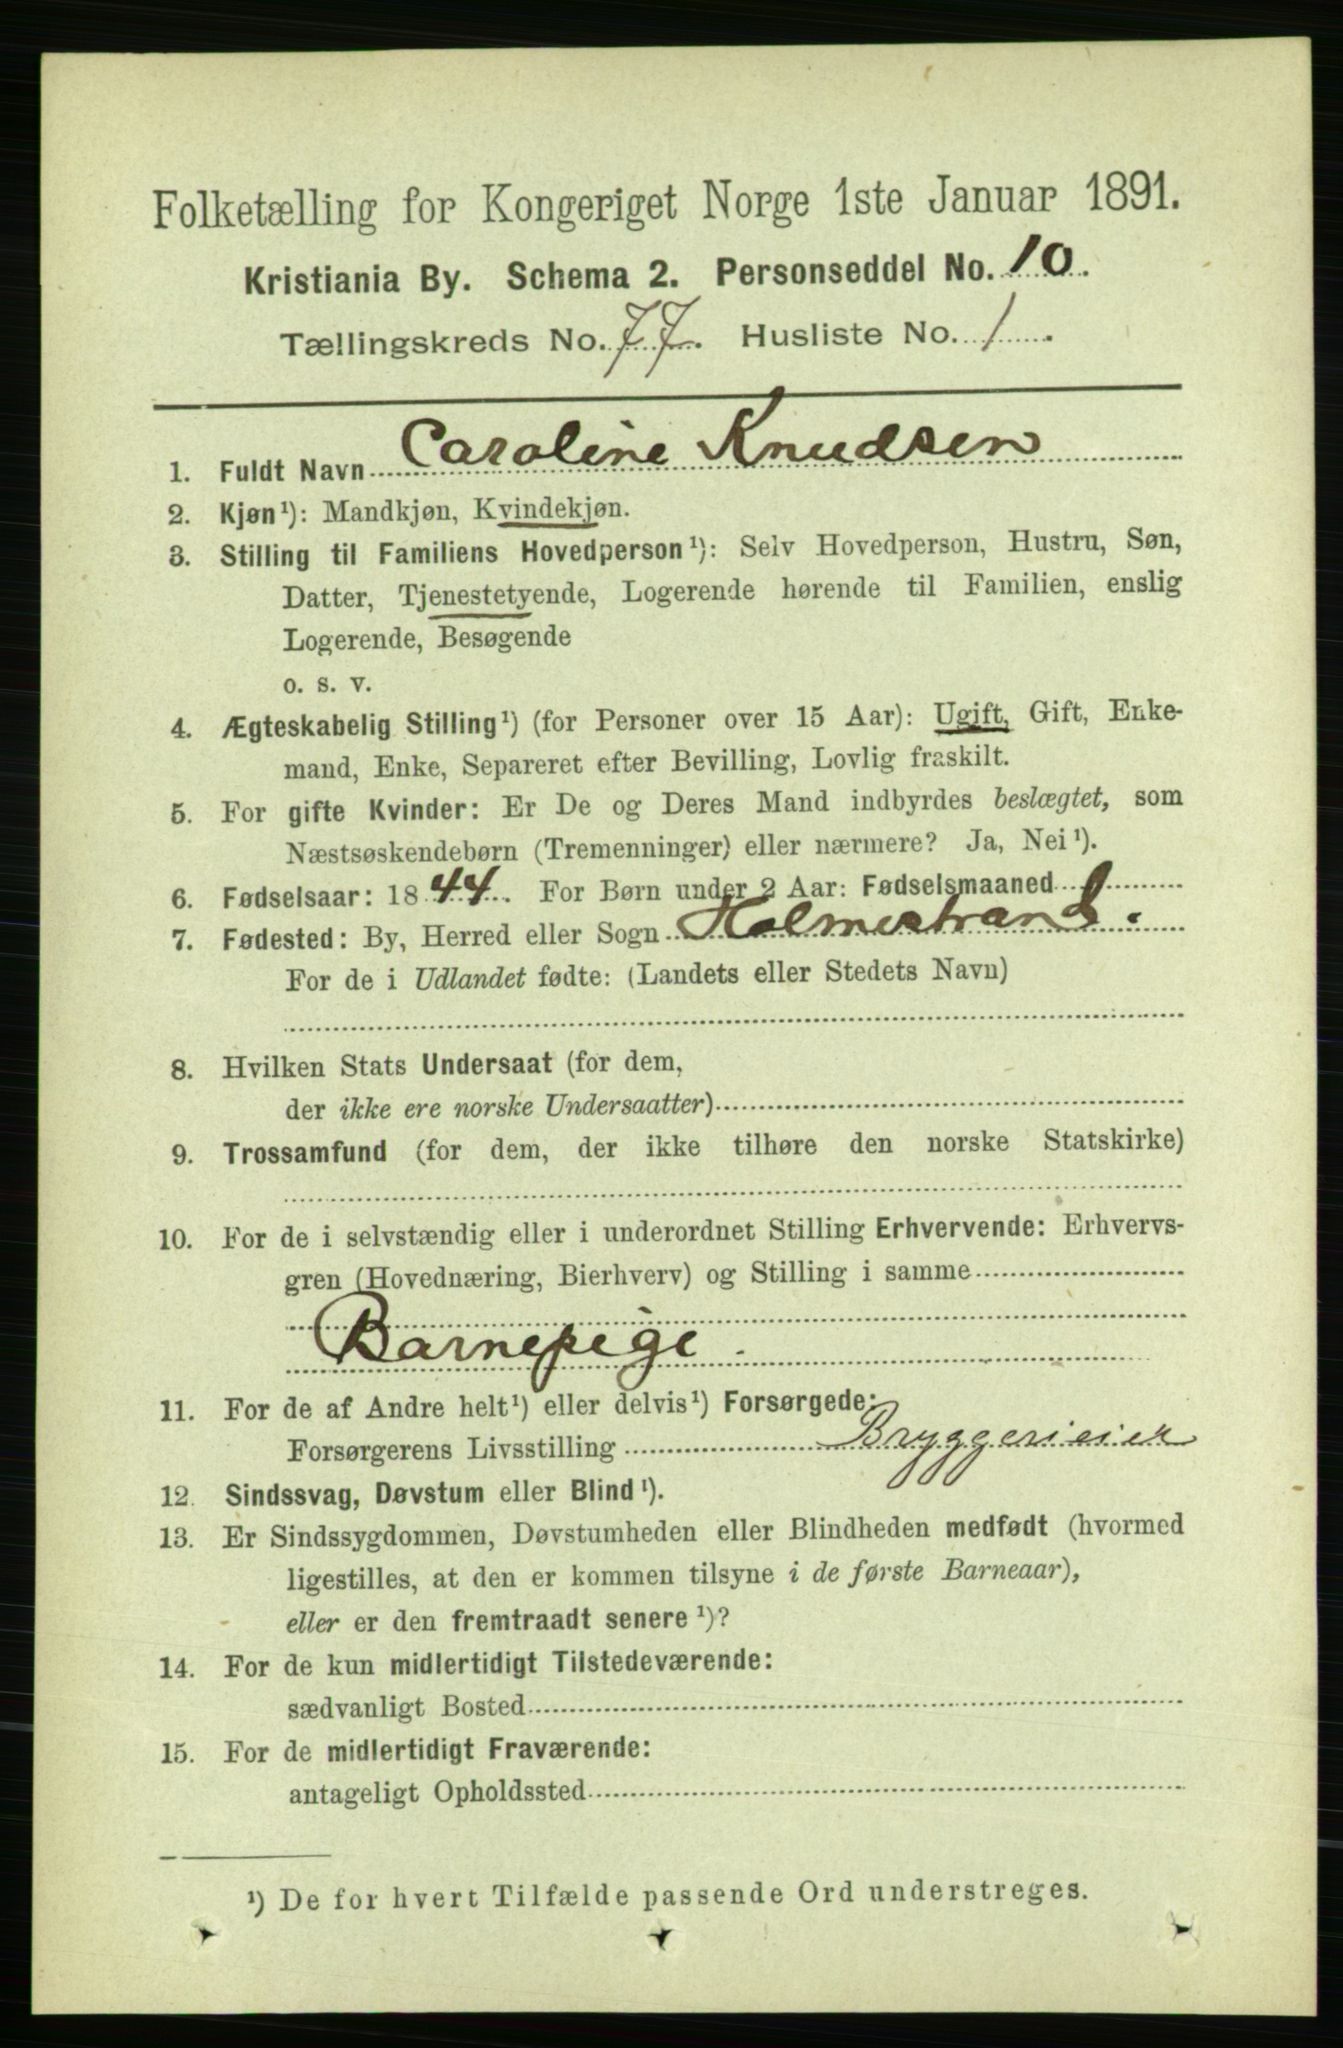 Folketælling for Kongeriget Norge 1ste Januar 1891.
Kristiania By. Schema 2. Personseddel No. 10.
Tællingskreds No. 77. Husliste No. 1.
1. Fuldt Navn Caroline Knudsen
2. Kjøn¹): Mandkjøn, Kvindekjøn.
3. Stilling til Familiens Hovedperson¹): Selv Hovedperson, Hustru, Søn,
Datter, Tjenestetyende, Logerende hørende til Familien, enslig
Logerende, Besøgende
o. s. v.
4. Ægteskabelig Stilling¹) (for Personer over 15 Aar): Ugift, Gift, Enke-
mand, Enke, Separeret efter Bevilling, Lovlig fraskilt.
5. For gifte Kvinder: Er De og Deres Mand indbyrdes beslægtet, som
Næstsøskendebørn (Tremenninger) eller nærmere? Ja, Nei¹).
6. Fødselsaar: 1844. For Børn under 2 Aar: Fødselsmaaned
7. Fødested: By, Herred eller Sogn Holmestrand.
For de i Udlandet fødte: (Landets eller Stedets Navn)
8. Hvilken Stats Undersaat (for dem,
der ikke ere norske Undersaatter)
9. Trossamfund (for dem, der ikke tilhøre den norske Statskirke)
10. For de i selvstændig eller i underordnet Stilling Erhvervende: Erhvervs-
gren (Hovednæring, Bierhverv) og Stilling i samme
Barnepige.
11. For de af Andre helt¹) eller delvis¹) Forsørgede:
Forsørgerens Livsstilling Bryggerieier
12. Sindssvag, Døvstum eller Blind¹).
13. Er Sindssygdommen, Døvstumheden eller Blindheden medfødt (hvormed
ligestilles, at den er kommen tilsyne i de første Barneaar),
eller er den fremtraadt senere¹)?
14. For de kun midlertidigt Tilstedeværende:
sædvanligt Bosted
15. For de midlertidigt Fraværende:
antageligt Opholdssted
¹) De for hvert Tilfælde passende Ord understreges.